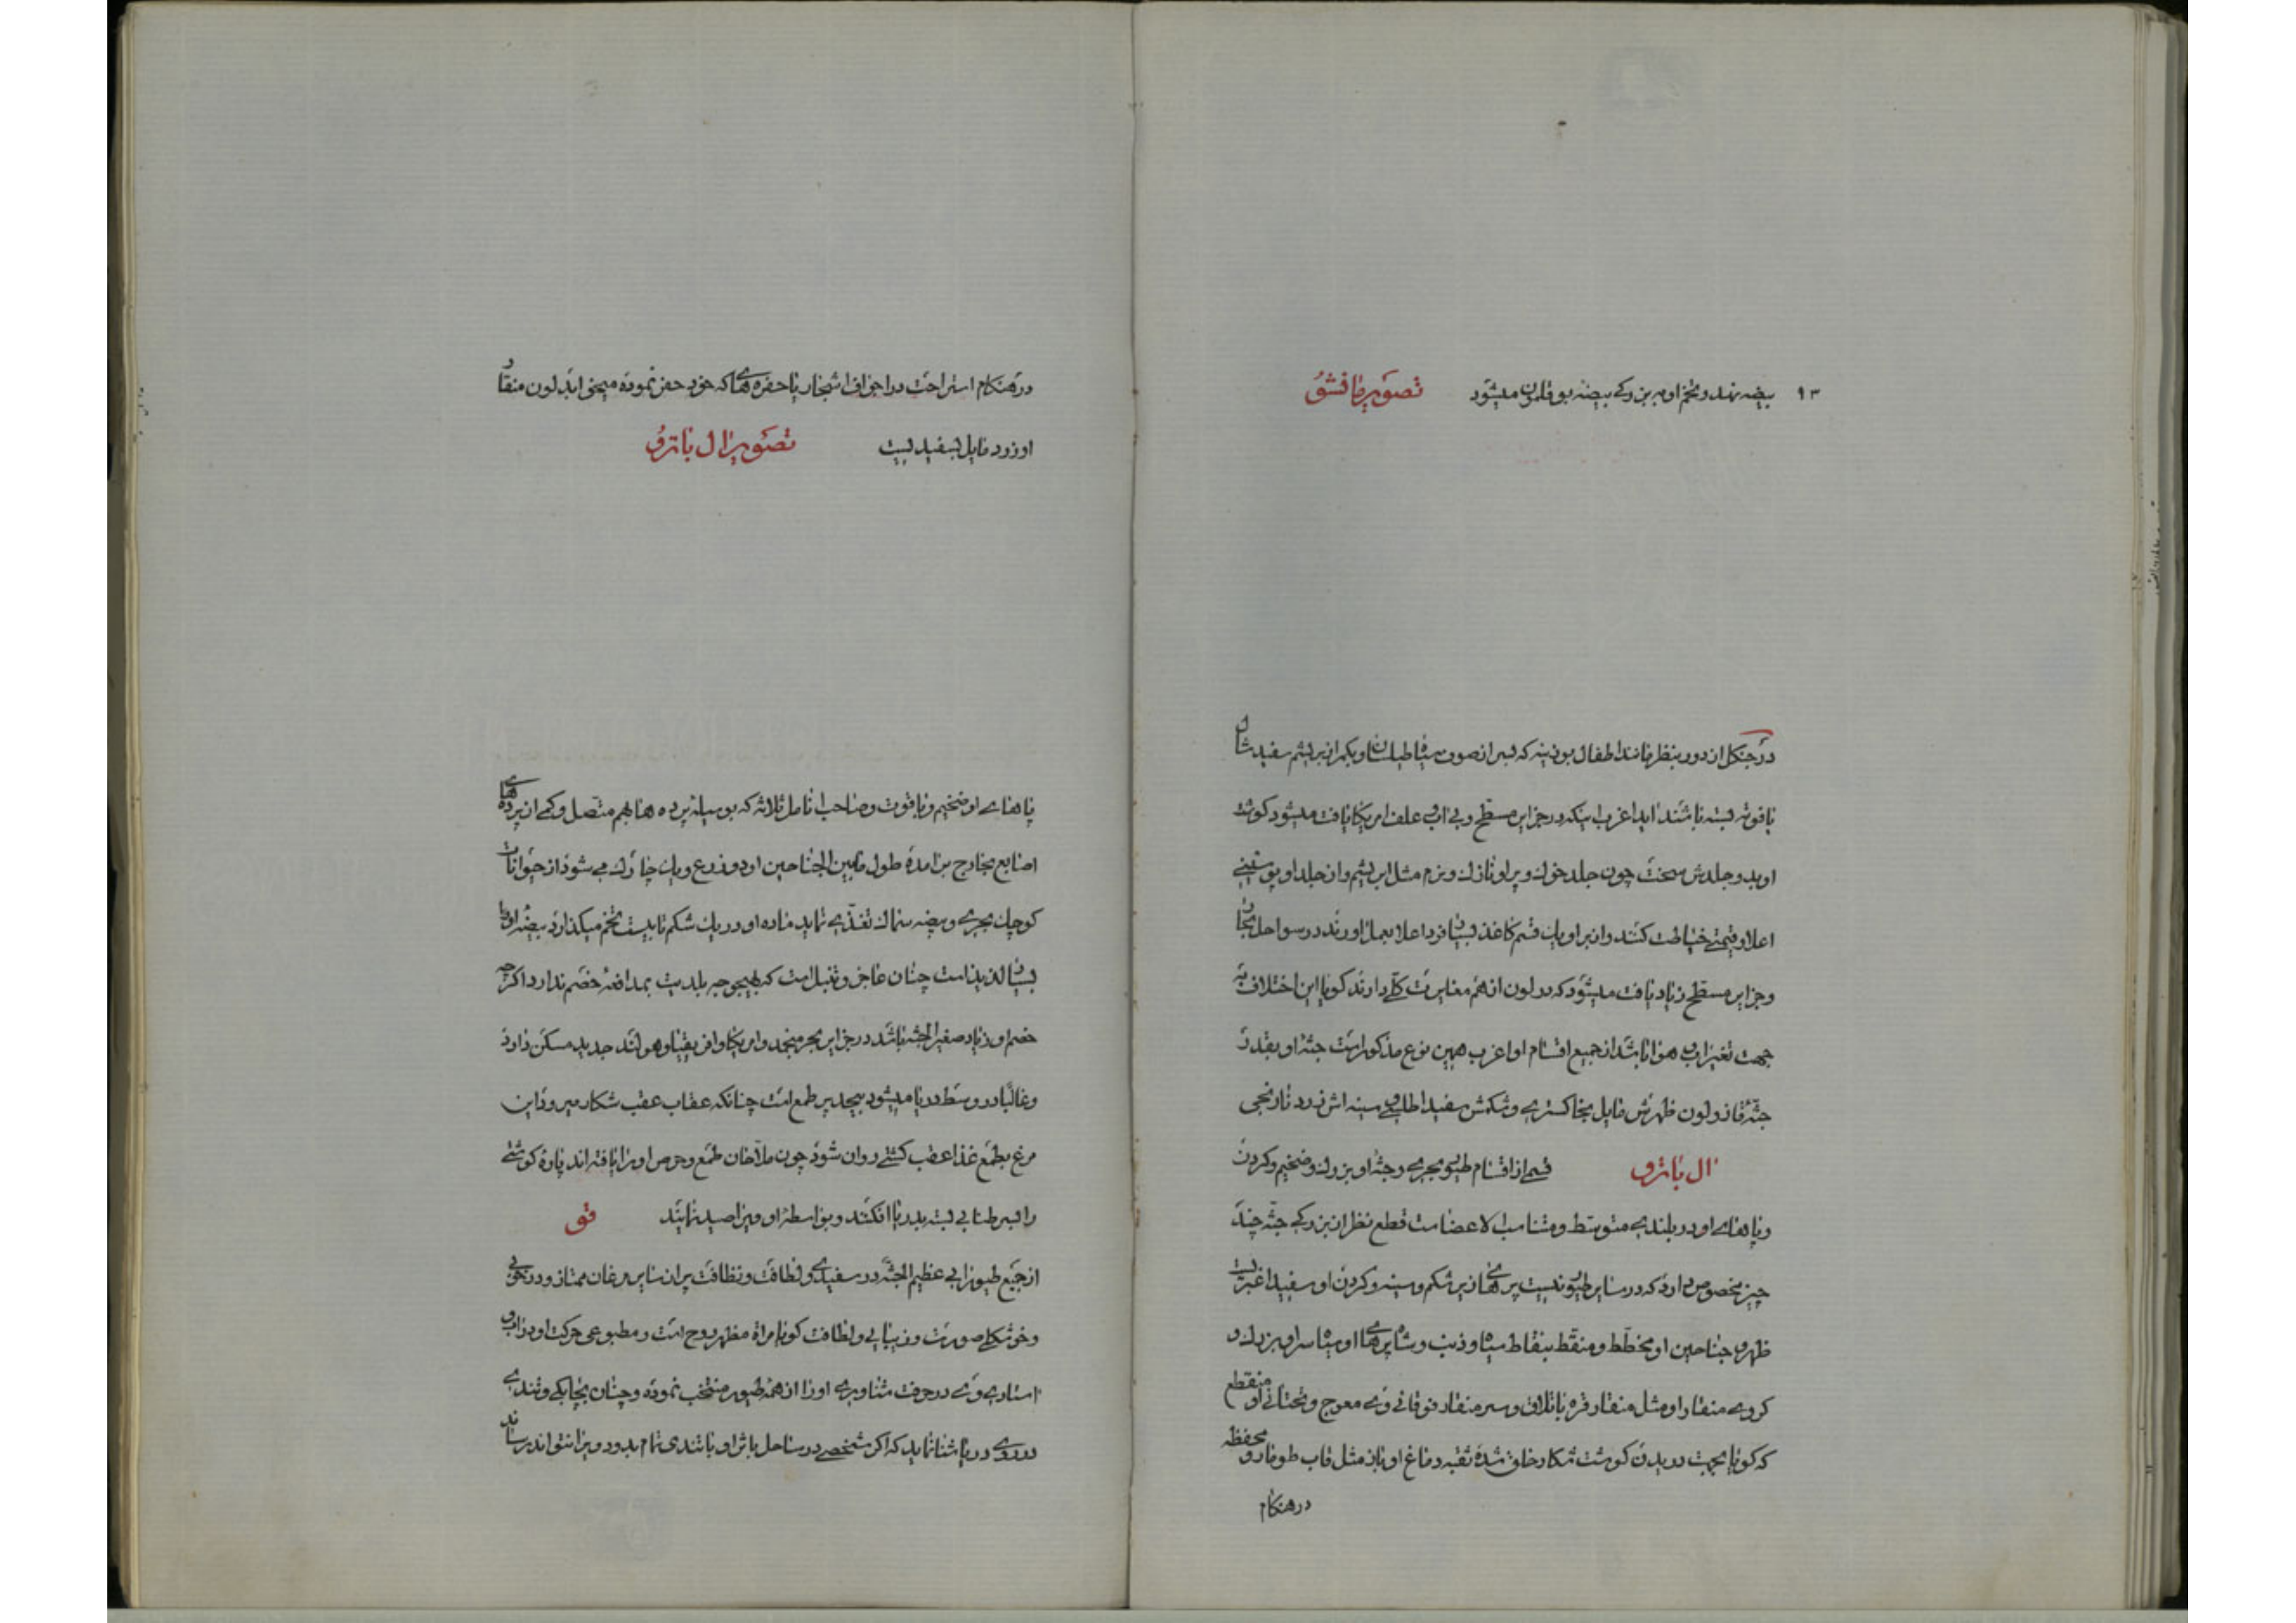 ۹۳ بیضه نهد و تخم او به بزرگی بیضه بوقلمون میشود تصویر مانشو
در جنکل از دور بنظر مانند اطفال بوزینه که لباس از صوف سیاه و کمر از بریشم سفید
با فوته بسته باشند اغرب اینکه در جزایر مسطح و بی اب علف امریکا یافت میشود کوشت
او بد و جلدش سخت چون جلد خوک و پر او نازک و نرم مثل ابریشم و از جلد او پوستینی
اعلا و قیمتی خیاطت کنند و از پر او یک قسم کاغذ بسیار فرد اعلا بعمل اورند در سواحل بحار
و جزایر مسطح زیاد یافت میشود که در لون از هم مغایرت کلی دارند کویا این اختلاف به
جهت تغیر اب و هوا باشد از جمیع اقسام او اغرب همین نوع مذکور است جثه او بقدر
جثه قاز و لون ظهرش مایل بخاکستری و شکمش سفید اطلسی و سینه اش زرد نارنجی
ال باترو قسمی از اقسام طیور بحری و جثه او بزرک و ضخیم و کردن
و پاهای او در بلندی متوسط و متناسب الاعضاست قطع نظر از بزرکی جثه چند
چیز مخصوص دارد که در سایر طیور نیست پرهای زیر شکم و سینه و کردن او سفید اغبر است
ظهر و جناحین او مخطط و منقط بنقاط سیاه و ذنب و شاه پرهای او سیاه سر او بزرک و
کروی منقار او مثل منقار قره باتلاق و سر منقار فوقانی وی معوج و تحتانی او منقطع
که کویا بجهت دریدن کوشت شکار خلق شده ثقبه دماغ او باز مثل قاب طومار و محفظه
در هنکام
در هنکام استراحت در اجواف اشجار یا حفره هائی که خود حفر نموده میخوابد لون منقار
او زرد مایل بسفیدیست تصویر ال باترو
پاهای او ضخیم و با قوت و صاحب انامل ثلاثه که بوسیله پرده ها بهم متصل و کمی از پرده های
اصابع بخارج برامده طول مابین الجناحین او دو ذرع و یک چارک می شود از حیوانات
کوچک بحری و بیضه سمک تغذی نماید ماده او در یک شکم تا بیست تخم میکذارد بیضه او
بسیار لذیذ است چنان عاجز و تنبل است که بهیچوجه بلدیت بمدافعه خصم ندارد اکرچه
خصم او زیاد صغیر الجثه باشد در جزایر بحر منجمد و امریکا و افریقیا و هولند جدید مسکن دارد
و غالبا در وسط دریا میشود بیحد پر طمع است چنانکه عقاب عقب شکار میرود این
مرغ بطمع غذا عقب کشتی روان شود چون ملاحان طمع و حرص او را یافته اند پاره کوشتی
را بسر طنابی بسته بدریا افکنند و بواسطه او ویرا صید نمایند قو
از جمیع طیور ابی عظیم الجثه در سفیدی و لطافت و نظافت پر از سایر مرغان ممتاز و در خوبی
و خوشکلی صورت و زیبایی و لطافت کویا مراة مظهر روح است و مطبوعی حرکت او در اب و
استادی وی در حرفت شناوری او را از همه طیور منتخب نموده و چنان بچابکی و تندی
در روی دریا شنا نماید که اکر شخصی در ساحل با او با تندی تمام بدود ویرا نتواند رساند